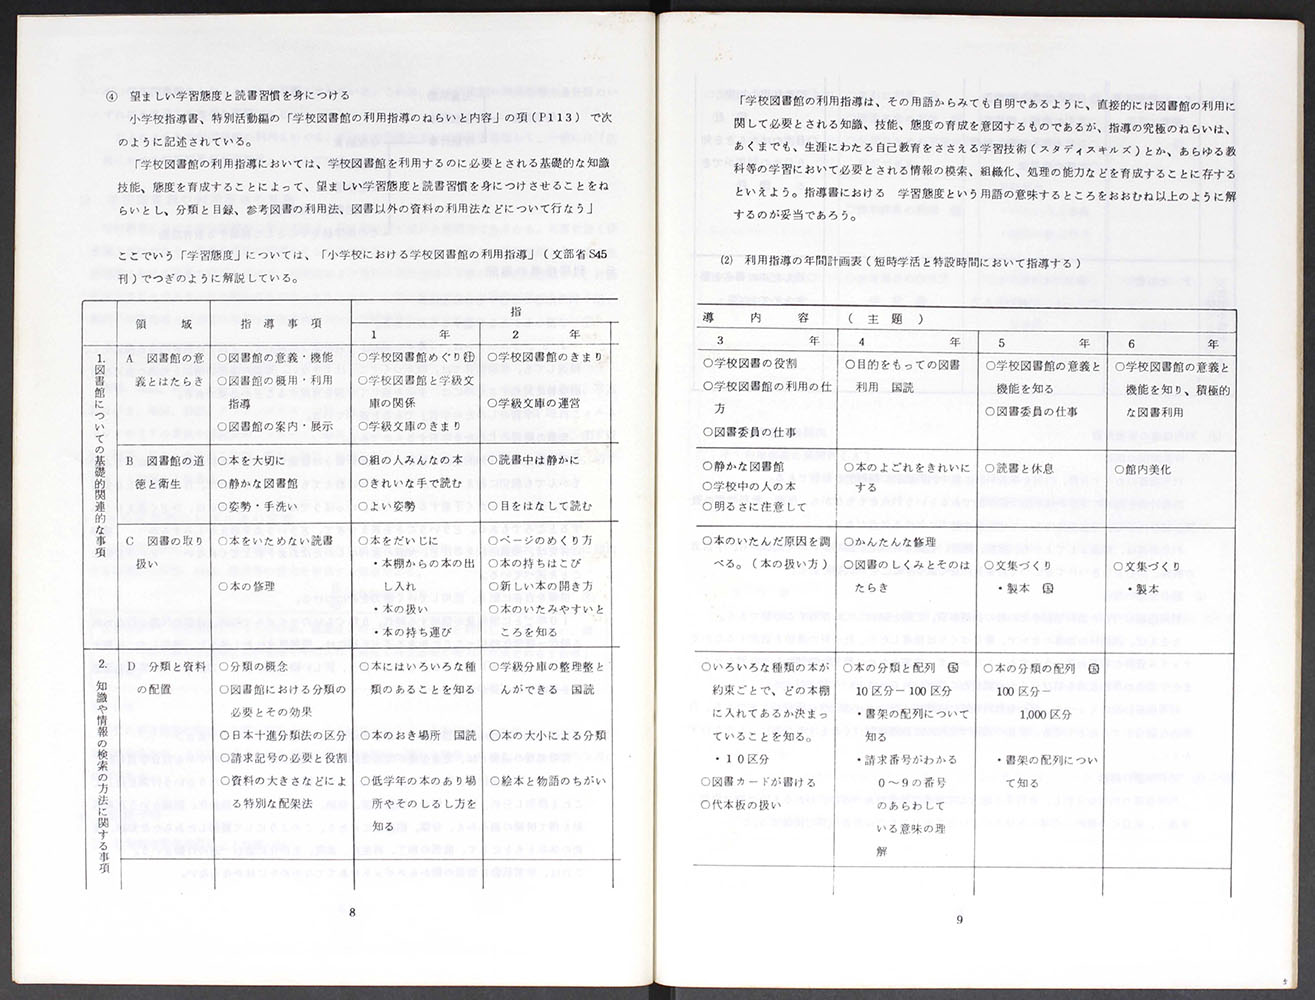 ④　望ましい学習態度と読書習慣を身につける
小学校指導書、特別活動編の「学校図書館の利用指導のねらいと内容」の項(P113) で次
のように記述されている。
「学校図書館の利用指導においては、学校図書館を利用するのに必要とされる基礎的な知識
技能、態度を育成することによって、望ましい学習態度と読書習慣を身につけさせることをね
らいとし、分類と目録、参考図書の利用法、図書以外の資料の利用法などについて行なう」
ここでいう「学習態度」については、「小学校における学校図書館の利用指導」(文部省S45
刊)でつぎのように解説している。
領　域　指導事項　指
1　年　2　年
1.図書館についての基礎的関連的な事項
A　図書館の意
義とはたらき
○図書館の意義・機能
○図書館の概用・利用
指導
○図書館の案内・展示
○学校図書館めぐり㊓
○学校図書館と学級文
庫の関係
○学級文庫のきまり
○学校図書館のきまり
○学級文庫の運営
B　図書館の道
徳と衛生
○本を大切に
○静かな図書館
○姿勢・手洗い
○組の人みんなの本
○きれいな手で読む
○よい姿勢
○読書中は静かに
○目をはなして読む
C　図書の取り
扱い
○本をいためない読書
○本の修理
○本をだいじに
・本棚からの本の出
し入れ
・本の扱い
・本の持ち運び
○ページのめくり方
○本の持ちはこび
○新しい本の開き方
○本のいたみやすいと
ころを知る
2.知識や情報の検索の方法に関する事項
D　分類と資料
の配置
○分類の概念
○図書館における分類の
必要とその効果
○日本十進分類法の区分
○請求記号の必要と役割
○資料の大きさなどによ
る特別な配架法
○本にはいろいろな種
類のあることを知る
○本のおき場所　国読
○低学年の本のあり場
所やそのしるし方を
知る
○学級分庫の整理整と
んができる　国読
○本の大小による分類
○絵本と物語のちがい
8
「学校図書館の利用指導は、その用語からみても自明であるように、直接的には図書館の利用に
関して必要とされる知識、技能、態度の育成を意図するものであるが、指導の究極のねらいは、
あくまでも、生涯にわたる自己教育をささえる学習技術(スタディスキルズ)とか、あらゆる教
科等の学習において必要とされる情報の模索、組織化、処理の能力などを育成することに存する
といえよう。指導書における　学習態度という用語の意味するところをおおむね以上のように解
するのが妥当であろう。
(2)　利用指導の年間計画表(短時学活と特設時間において指導する)
導　内　容　(主題)
3　年　4　年　5　年　6　年
○学校図書館の役割
○学校図書館の利用の仕
方
○図書委員の仕事
○目的をもっての図書
利用　国読
○学校図書館の意義と
機能を知る
○図書委員の仕事
○学校図書館の意義と
機能を知り、積極的
な図書利用
○静かな図書館
○学校中の人の本
○明るさに注意して
○本のよごれをきれいに
する
○読書と休息
○館内美化
○本のいたんだ原因を調
べる。(本の扱い方)
○かんたんな修理
○図書のしくみとそのは
たらき
○文集づくり
・製本　国
○文集づくり
・製本
○いろいろな種類の本が
約束ごとで、どの本棚
に入れてあるか決まっ
ていることを知る。
・10区分
○図書カードが書ける
○代本板の扱い
○本の分類と配列　国
10区分－100区分
・書架の配列について
知る
・請求番号がわかる
0～9の番号
のあらわして
いる意味の理
解
○本の分類の配列　国
100区分－
1,000区分
・書架の配列につい
て知る
9